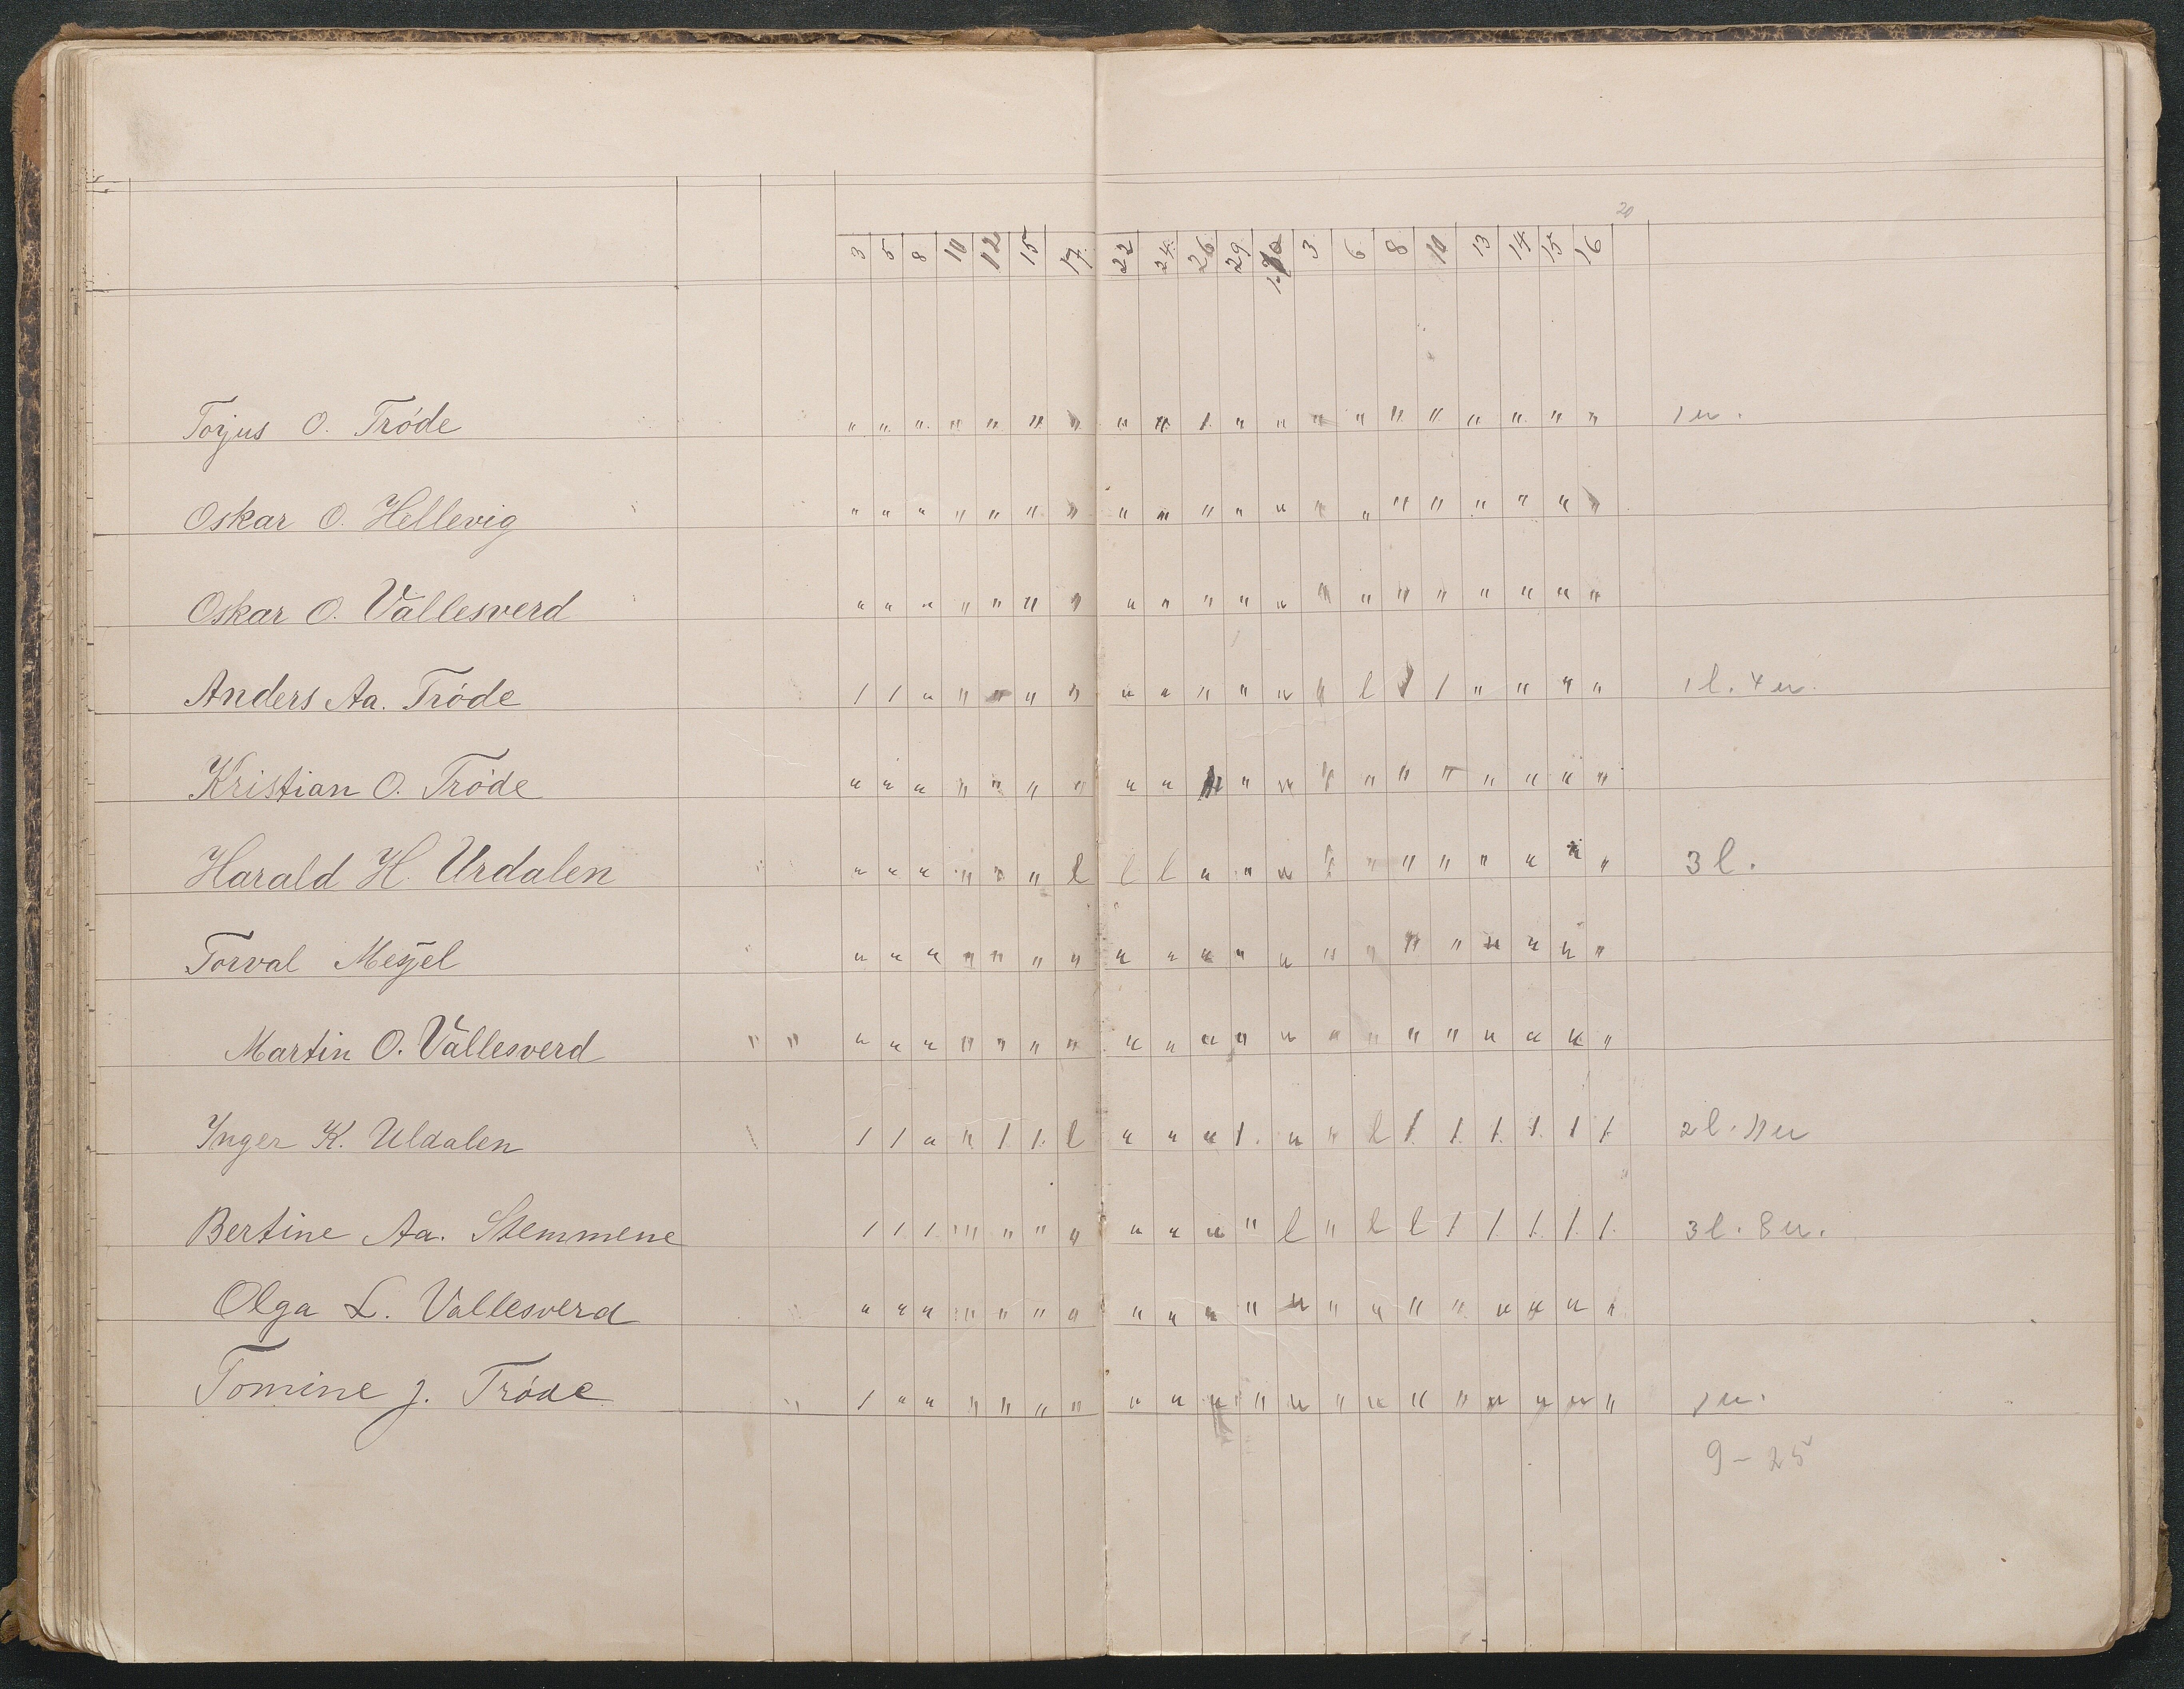 20
3 5 8 10 12 15 17 22 24 26 29 3 6 8 10 13 14 15 16
Torjus O. Tróde " " " " " " " " " 1 " " " " " " " " " " 1 u.
Oskar O. Hellevig " " " " " " " " " " " " " " " " " " " "
Oskar O. Vallesverd " " " " " " " " " " " " " " " " " " " "
Anders Aa. Tróde 1 1 " " " " " " " " " " " l 1 1 " " " " 1 l. 4 u.
Kristian O. Tróde " " " " " " " " " " " " " " " " " " "
Harald H. Urdalen " " " " " " l l l " " " " " " " " " " " 3 l.
Torval Mesel " " " " " " " " " " " " " " " " " " " "
Martin O. Vallesverd " " " " " " " " " " " " " " " " " " " " " "
Inger K. Uldalen 1 1 " " 1 1 l " " " 1 " " l 1 1 1 1 1 1 2 l. 11 u
Bertine Aa. Stemmene 1 1 1 " " " " " " " " l " l l 1 1 1 1 1 3 l. 8 u.
Olga L. Vallesverd " " " " " " " " " " " " " " " " " " " "
Tomine J. Tróde " 1 " " " " " " " " " " " " " " " " " " " 1 u.
9 - 25